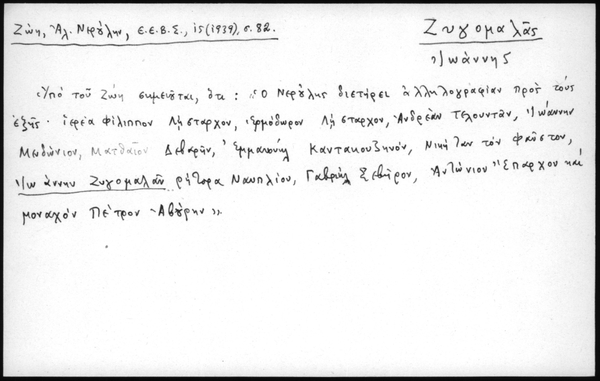 Ζώη, Ἀλ. Νερούλην, Ε.Ε.Β.Σ., ιϛ (1939), σ. 82.
Ζυγομαλᾶς
Ἰωάννης
Ὑπὸ τοῦ Ζώη σημειοῦται, ὅτι : «Ὁ Νερούλης διετήρει ἀλληλογραφίαν πρὸς τοὺς
ἑξῆς· ἱερέα Φίλιππον Λήσταρχον, Ἑρμόδωρον Λήσταρχον, Ἀνδρέαν Τελουντᾶν, Ἰωάννην
Μινδώνιον, Ματθαῖον Δεβαρῆν, Ἐμμανουὴλ Καντακουζηνόν, Νικήταν τὸν Φαῦστον,
Ἰωάννην Ζυγομαλᾶν ῥήτορα Ναυπλίου, Γαβριὴλ Σεβῆρον, Ἀντώνιον Ἔπαρχον καὶ
μοναχὸν Πέτρον Ἀβούρην».